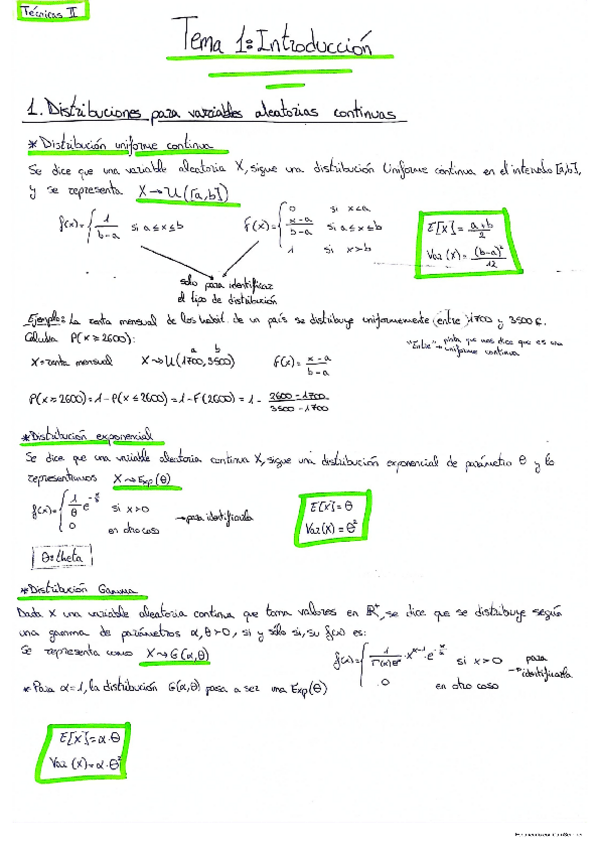 Técnicas II
Tema 1: Introducción
1. Distribuciones para variables aleatorias continuas
* Distribución uniforme continua
Se dice que una variable aleatoria X, sigue una distribución Uniforme continua en el intervalo [a,b],
y se representa X → U([a,b])
f(x) = { 1/(b-a) si a ≤ x ≤ b
F(x) = { 0 si x < a
(x-a)/(b-a) si a ≤ x ≤ b
1 si x > b
E[X] = (a+b)/2
Var (X) = (b-a)²/12
solo para identificar
el tipo de distribución
Ejemplo: La renta mensual de los habit. de un país se distribuye uniformemente (entre) 1700 y 3500 €.
Calcula P(x ≥ 2600):
"Entre" → pista que nos dice que es una
uniforme continua
a b
X = renta mensual X → U(1700, 3500) F(x) = (x-a)/(b-a)
P(x ≥ 2600) = 1 - P(x ≤ 2600) = 1 - F(2600) = 1 - (2600-1700)/(3500-1700)
* Distribución exponencial
Se dice que una variable aleatoria continua X, sigue una distribución exponencial de parámetro θ y lo
representamos X → Exp(θ)
f(x) = { 1/θ e^(-x/θ) si x > 0
0 en otro caso
→ para identificarla
E[X] = θ
Var(X) = θ²
θ = theta
* Distribución Gamma
Dada X una variable aleatoria continua que toma valores en R⁺, se dice que se distribuye según
una gamma de parámetros α, θ > 0, si y sólo si, su f(x) es:
Se representa como X → G(α,θ)
f(x) = { 1/(Γ(α)θ^α) · x^(α-1) · e^(-x/θ) si x > 0
0 en otro caso
→ para
identificarla
* Para α = 1, la distribución G(α,θ) pasa a ser una Exp(θ)
E[X] = α·θ
Var (X) = α·θ²